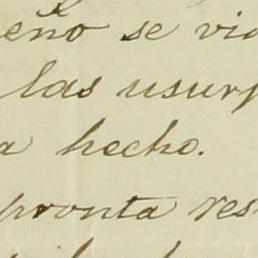 eño se vio
las usurp
a hecho.
pronta res